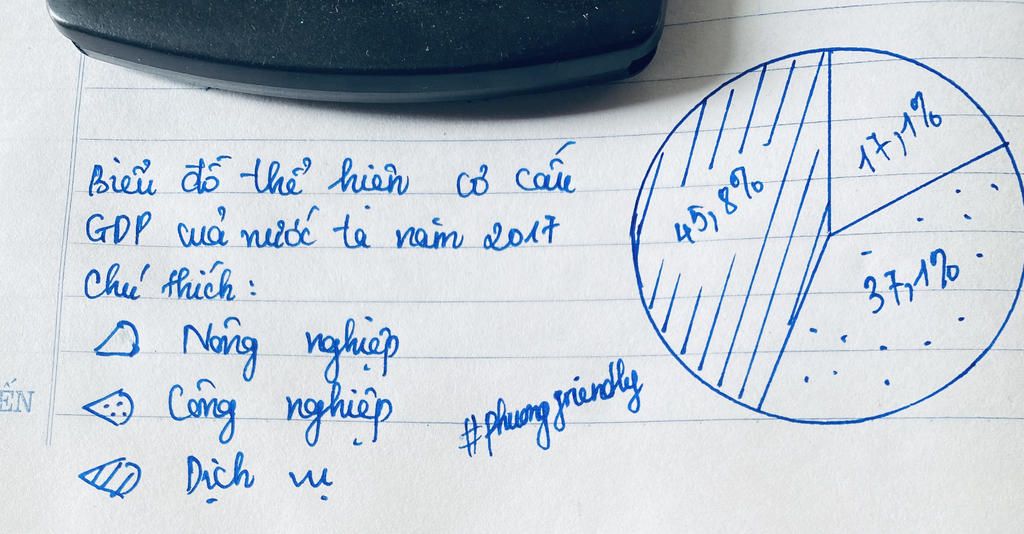 Biểu đồ thể hiện cơ cấu
GDP cuả nước ta năm 2017
Chú thích:
Nông nghiệp
Công nghiệp
Dịch vụ
#phuongfriendly
17,1%
45,8%
37,1%
ẾN